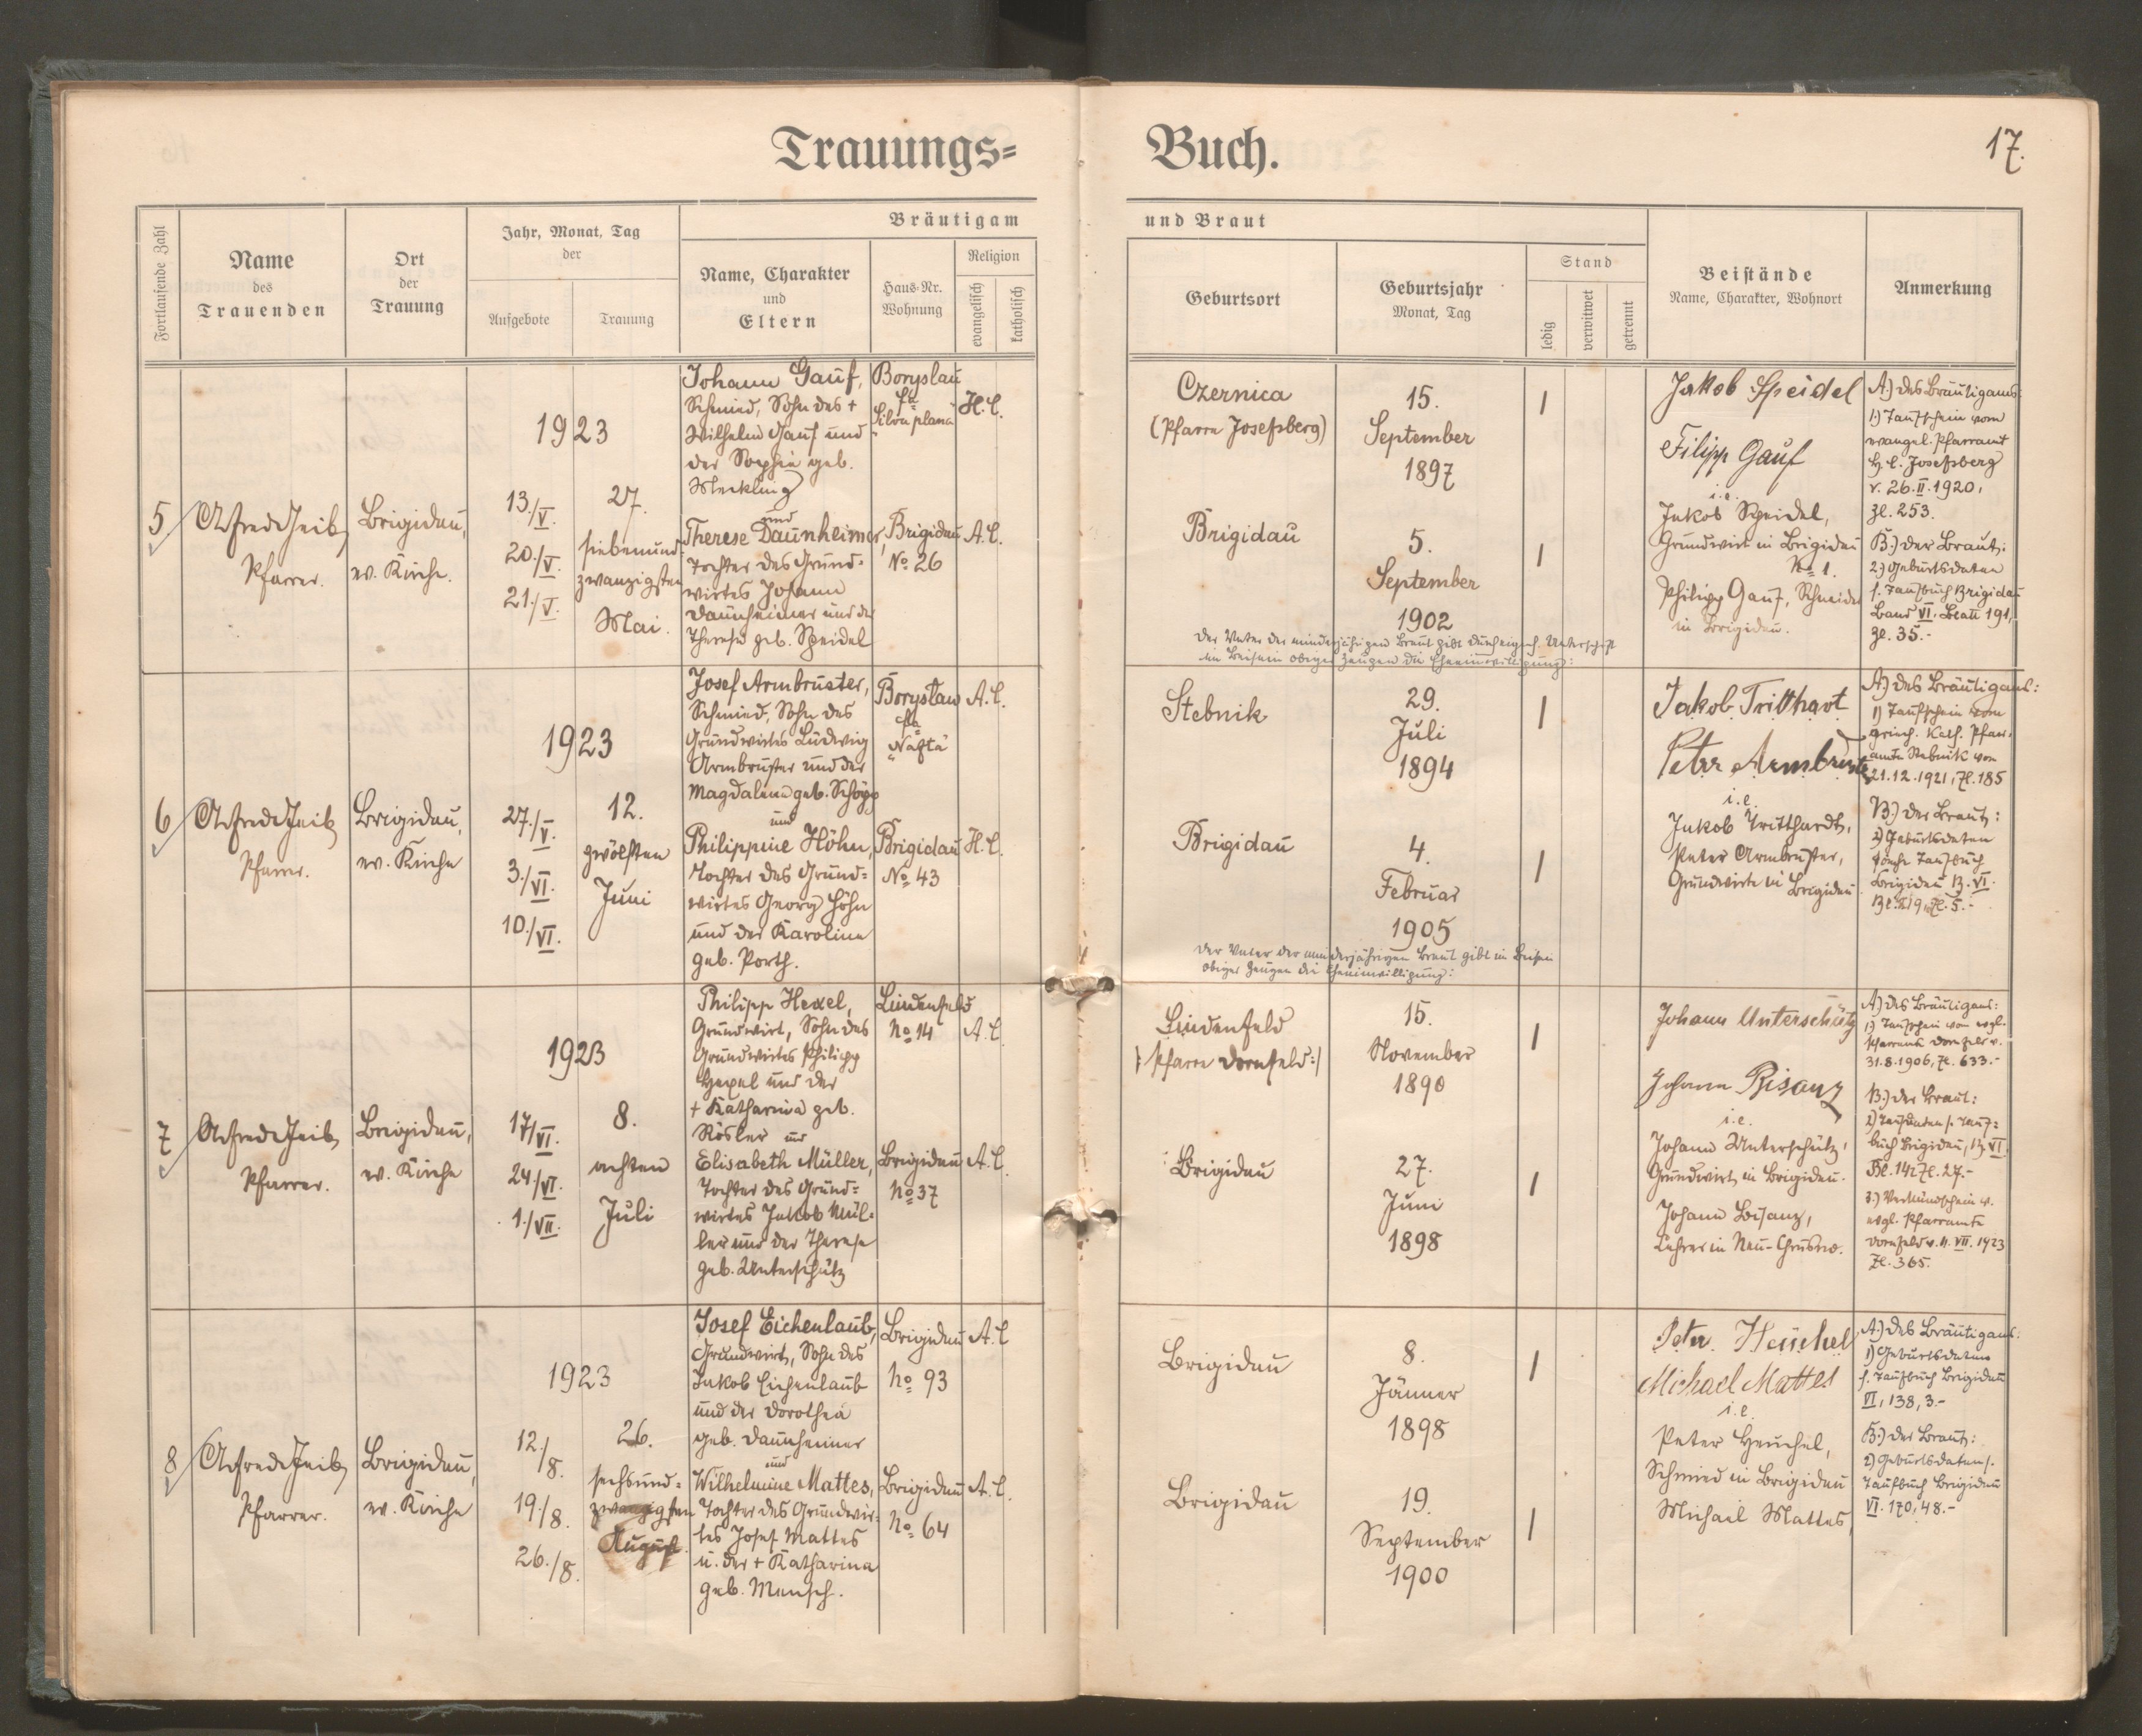 Trauungs= Buch.
17.
Fortlaufende Zahl
Name
des
Trauenden
Ort
der
Trauung
Jahr, Monat, Tag
der
Aufgebote
Trauung
Bräutigam
und Braut
Name, Charakter
und
Eltern
Haus-Nr.
Wohnung
Religion
evangelisch
katholisch
Geburtsort
Geburtsjahr
Monat, Tag
Stand
ledig
verwitwet
getrennt
Beistände
Name, Charakter, Wohnort
Anmerkung
5
Pfarrer.
Brigidau,
ev. Kirche.
1923
13./V.
20./V.
21./V.
27.
siebenund-
zwanzigsten
Mai.
Johann Gauf,
Schmied, Sohn des +
Wilhelm Gauf und
der Sophie geb.
Meckling
und
Therese Daunheimer,
Tochter des Grund-
wirtes Johann
Daunheimer und der
Therese geb. Speidel
Boryslau
fa
"Silva plana"
H.C.
Brigidau
No 26
A.C.
Czernica
(Pfarre Josefsberg)
15.
September
1897
Brigidau
5.
September
1902
Der Vater der minderjährigen Braut gibt durch eigenh. Unterschrift
im Beisein obiger Zeugen die Eheeinwilligung:
Jakob Speidel
Filipp Gauf
i.e.
Jakob Speidel,
Grundwirt in Brigidau
No 1.
Philipp Gauf, Schmied
in Brigidau.
A.) des Bräutigams:
1.) Taufschein vom
evangel. Pfarramt
H.C. Josefsberg
v. 26.II.1920,
Zl. 253.
B.) der Braut:
2.) Geburtsdaten
s. Taufbuch Brigidau
Band VI. Blatt 191,
Zl. 35.-
6
Pfarrer.
Brigidau,
ev. Kirche
1923
27./V.
3./VI.
10./VI.
12.
zwölften
Juni
Josef Armbruster,
Schmied, Sohn des
Grundwirtes Ludwig
Armbruster und der
Magdalena geb. Schöpp
und
Philippine Höhn,
Tochter des Grund=
wirtes Georg Höhn
und der Karoline
geb. Porth.
Borysław
fa
"Nafta"
A.C.
Brigidau
No 43
H.C.
Stebnik
29.
Juli
1894
Brigidau
4.
Februar
1905
Der Vater der minderjährigen Braut gibt im Beisein
obiger Zeugen die Eheeinwilligung:
Jakob Tritthart
Peter Armbruster
i.e.
Jakob Tritthardt,
Peter Armbruster,
Grundwirte in Brigidau
A.) des Bräutigams:
1) Taufschein vom
griech. Kath. Pfarr-
amte Stebnik vom
21.12.1921, Zl. 185
B.) der Braut:
2) Geburtsdaten
siehe Taufbuch
Brigidau B. VI.
7
Pfarrer.
Brigidau,
ev. Kirche
1923
17/VI.
24/VI.
1./VII.
8.
achten
Juli
Philipp Hexel,
Grundwirt, Sohn des
Grundwirtes Philipp
Hexel und der
+ Katharina geb.
Rösler und
Elisabeth Müller,
Tochter des Grund=
wirtes Jakob Mül-
ler und der Therese
geb. Unterschütz
Lindenfeld
No 14
A.C.
Brigidau
No 37
A.C.
Lindenfeld
/: Pfarre Dornfeld :/
15.
November
1890
Brigidau
27.
Juni
1898
Johann Unterschütz
Johann Bisanz
i.e.
Johann Unterschütz,
Grundwirt in Brigidau.
Johann Bisanz,
Lehrer in Neu-Chrusno.
A.) des Bräutigams:
1.) Taufschein vom evgl.
Pfarramte Dornfeld v.
31.8.1906, Zl. 633.-
B.) der Braut:
2) Taufdaten s. Tauf=
buch Brigidau, B. VI.
Bl. 142 Zl. 27.-
3.) Verkündschein v.
evgl. Pfarramte
Dornfeld v. 11. VII. 1923
Zl. 365.
8
Pfarrer.
Brigidau,
ev. Kirche
1923
12./8.
19./8.
26./8.
26.
sechsund=
zwanzigsten
August
Josef Eichenlaub,
Grundwirt, Sohn des
Jakob Eichenlaub
und der Dorothea
geb. Daunheimer
und
Wilhelmine Mattes,
Tochter des Grundwir-
tes Josef Mattes
u. der + Katharina
geb. Mensch.
Brigidau
No 93
A.C
Brigidau
No 64
A.C.
Brigidau
8.
Jänner
1898
Brigidau
19.
September
1900
Peter Heuchel
Michael Mattes
i.e.
Peter Heuchel,
Schmied in Brigidau
Michael Mattes,
A.) des Bräutigams:
1) Geburtsdaten
s. Taufbuch Brigidau
VI, 138, 3.-
B.) der Braut:
2) Geburtsdaten s.
Taufbuch Brigidau
VI. 170, 48.-